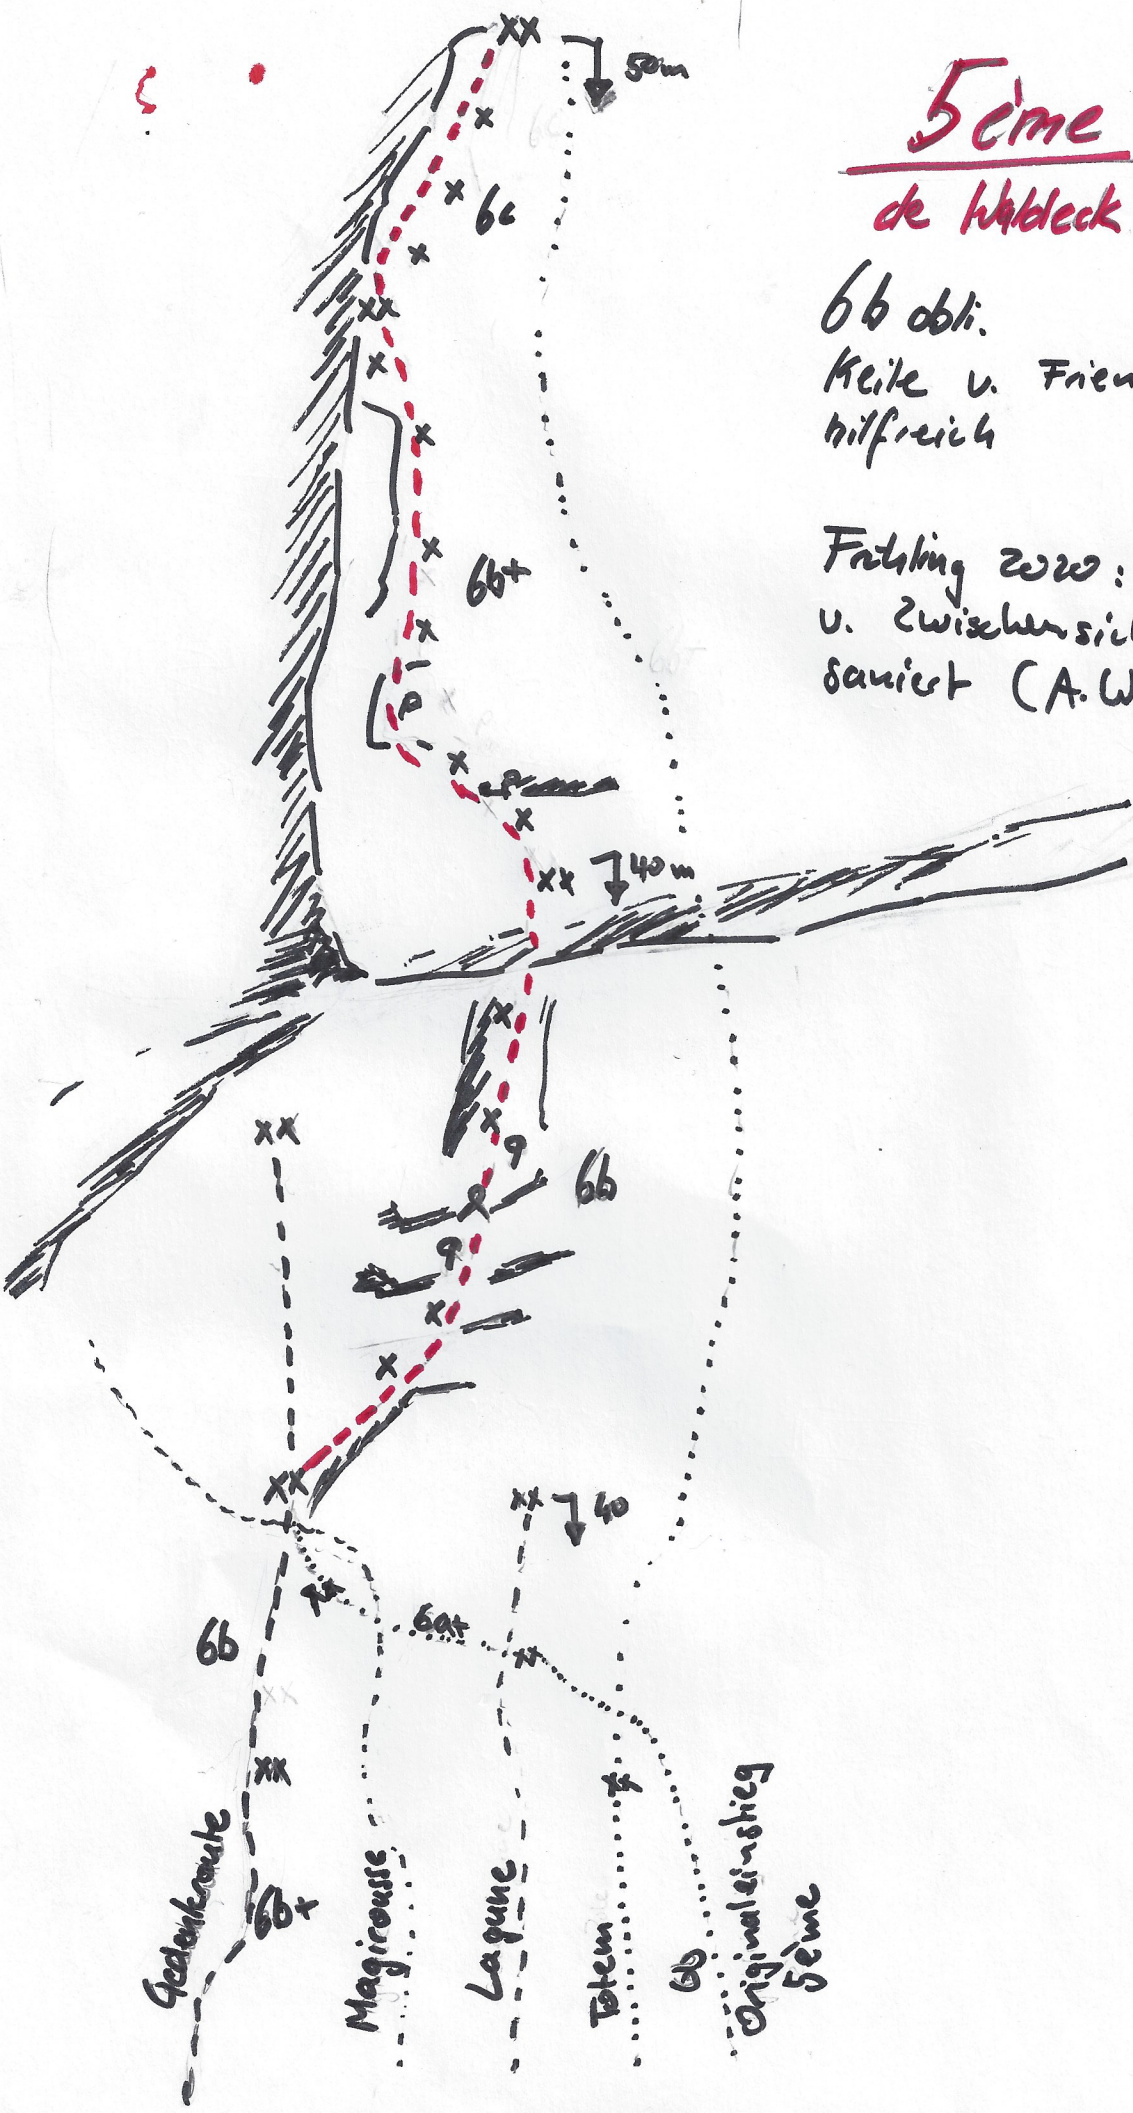 xx
50m
5ème
de Waldeck
6c
6b obli.
Keile u. Frien
hilfreich
xx
Frühling 2020:
u. Zwischensich
saniert (A.W
6b+
xx
40m
xx
6b
xx
xx
40
6a+
6b
xx
xx
xx
6b+
Gedenkroute
Magirousse
Lagune
Totem
6b
Originaleinstieg
5ème